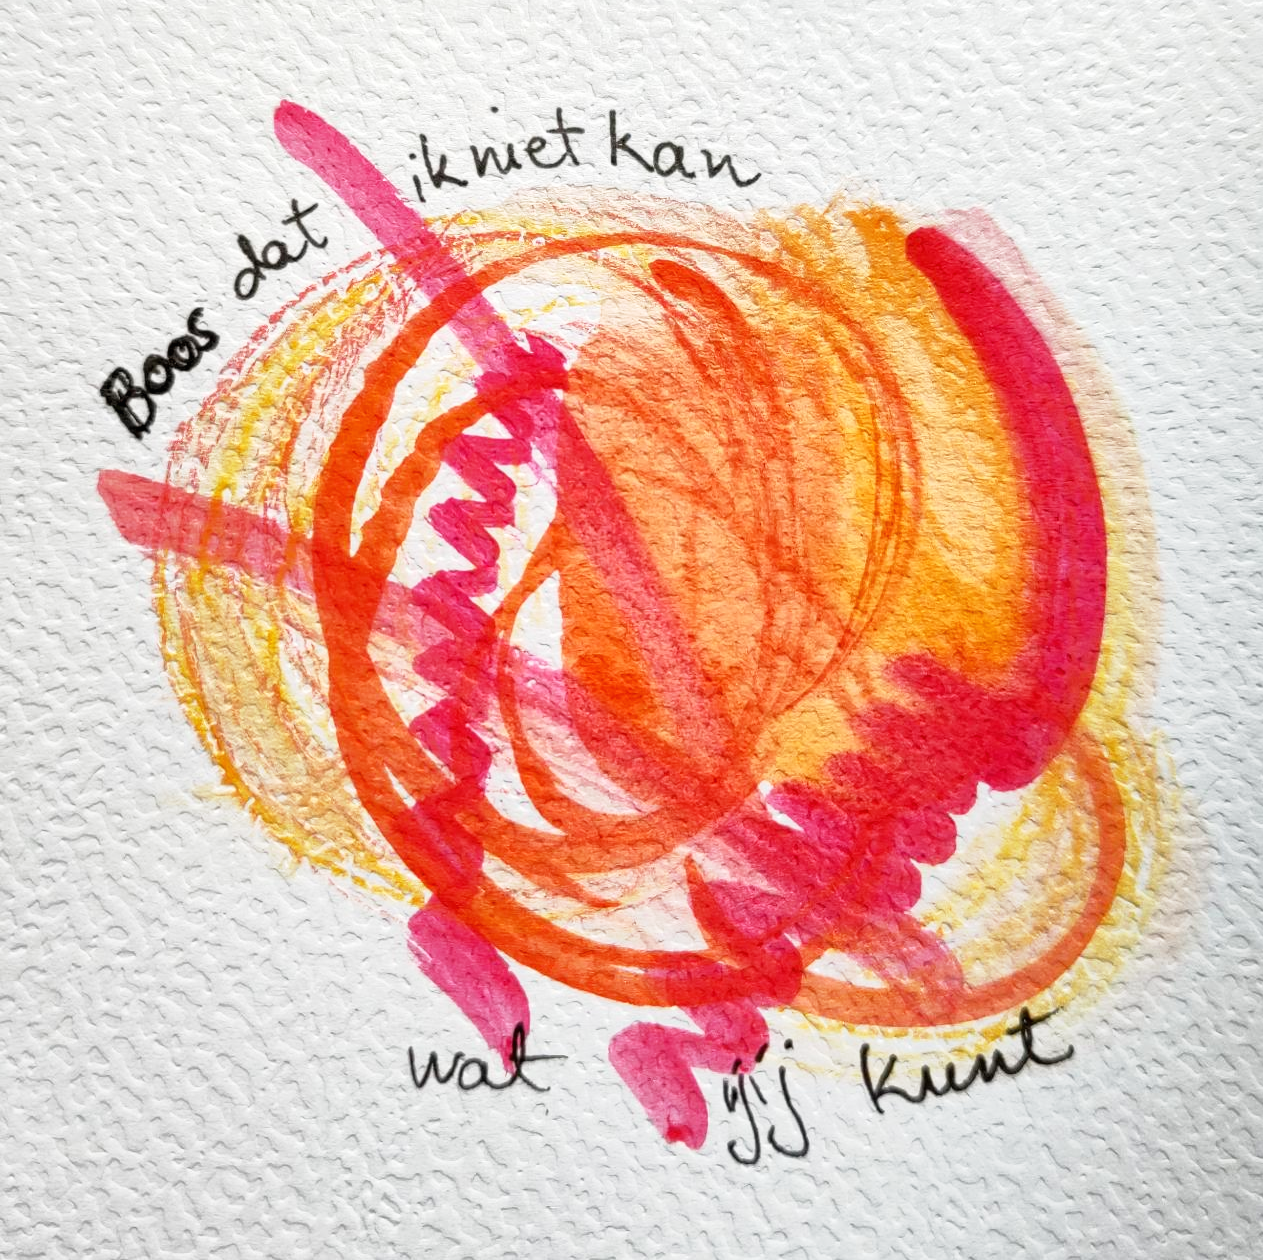 Boos dat ik niet kan
wat jij kunt